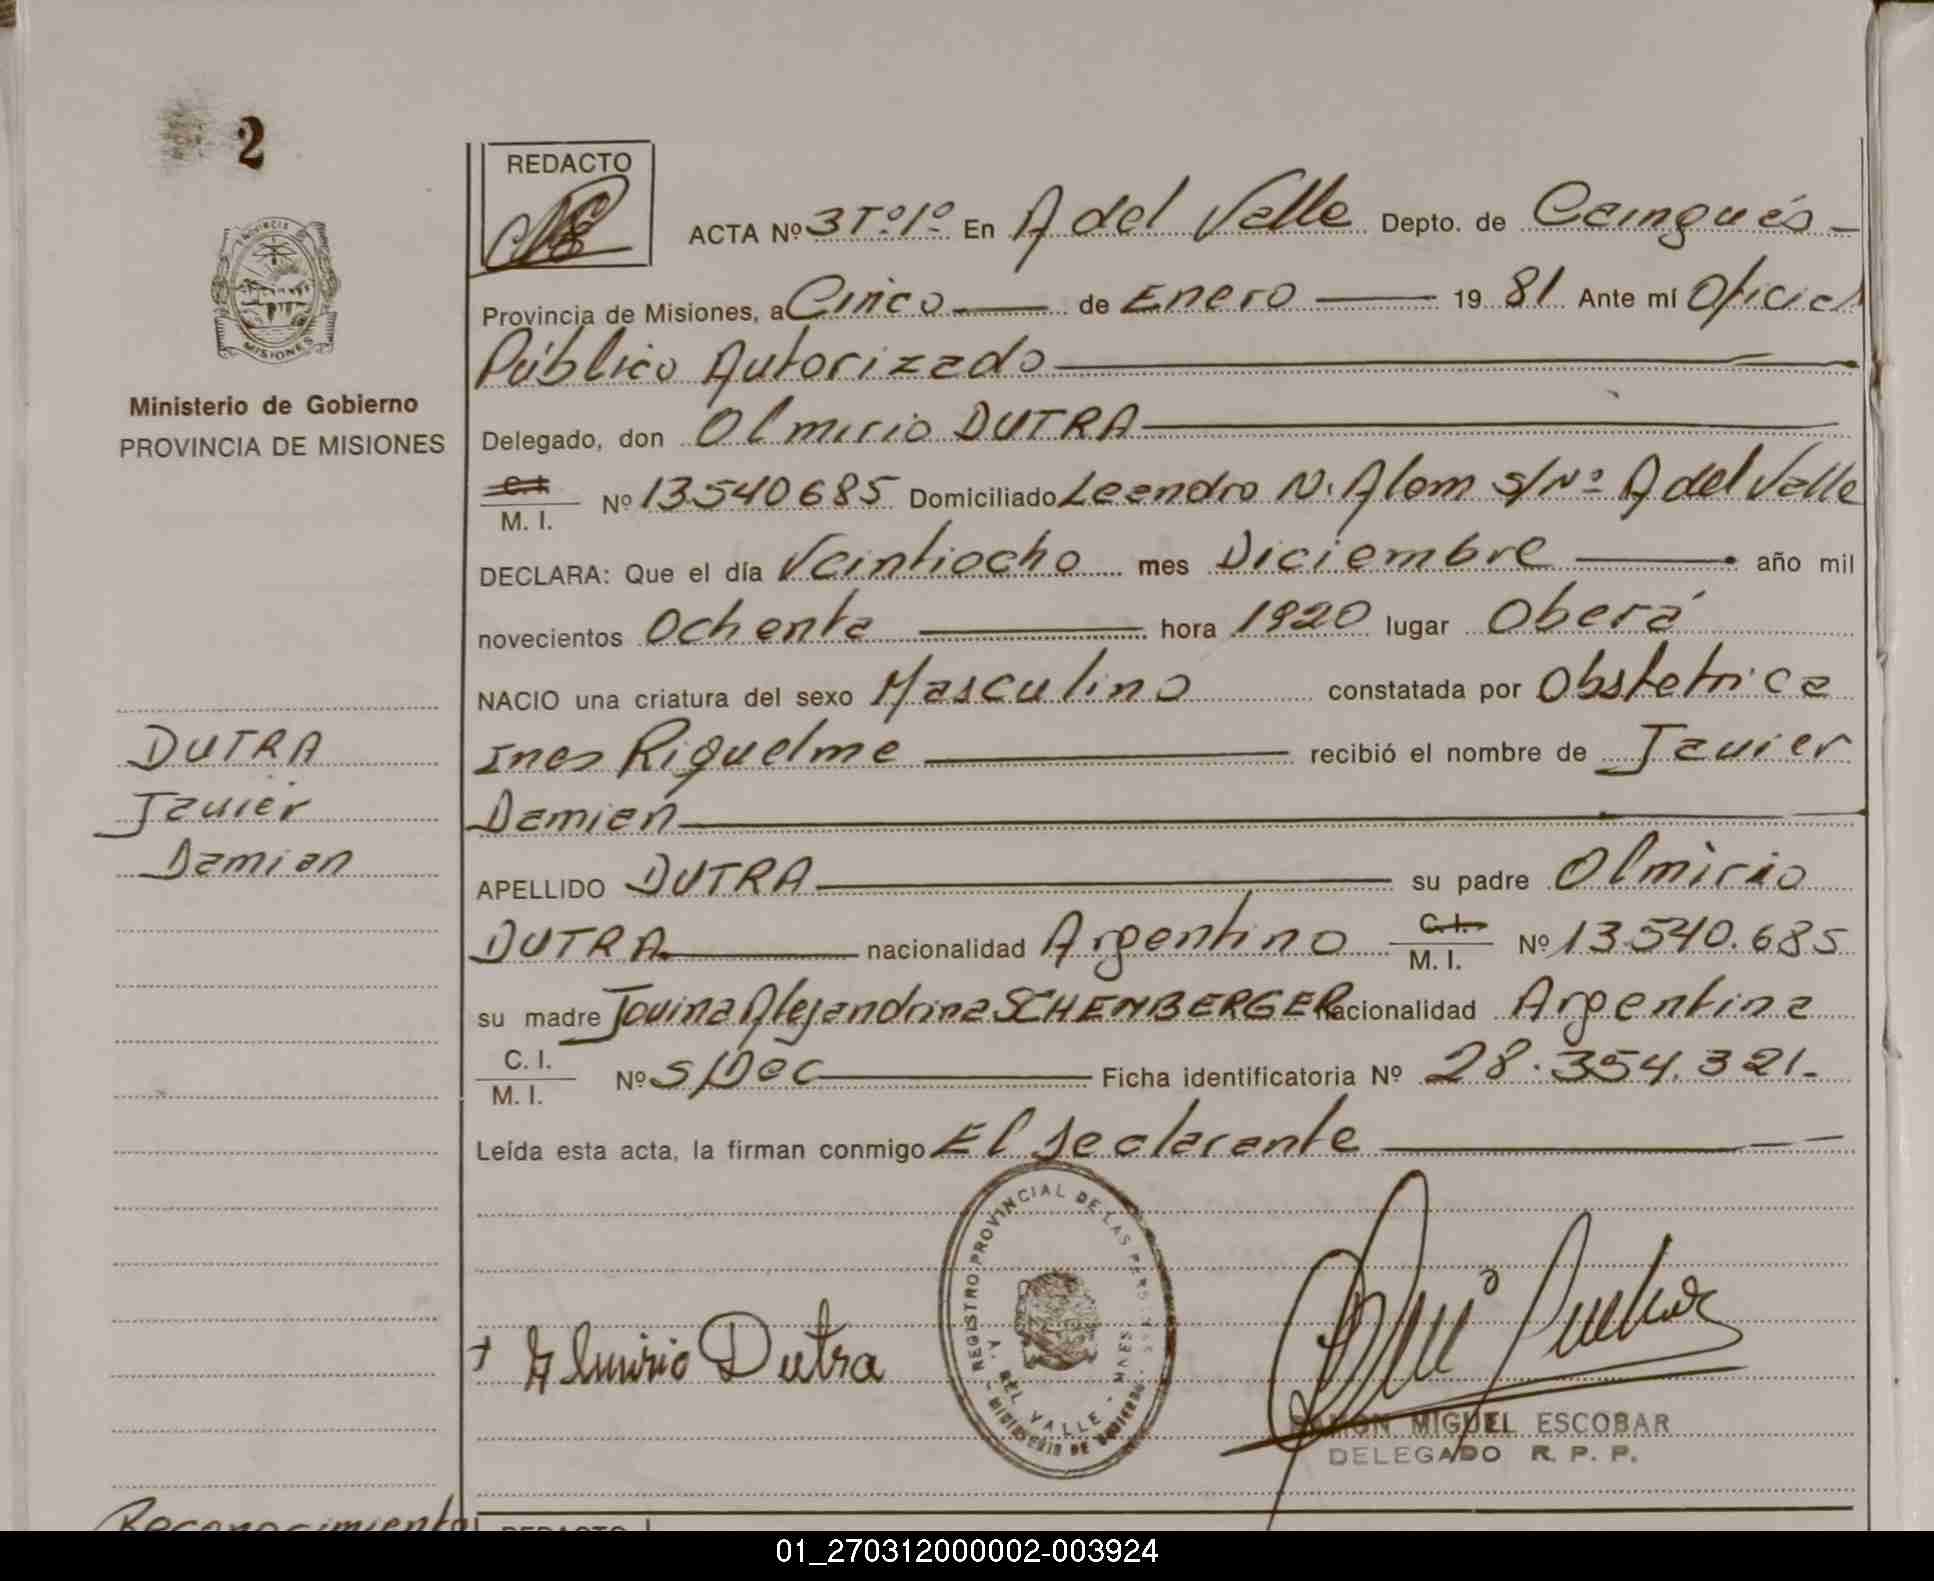 2
REDACTO
ACTA Nº 3Tº1º En A del Valle Depto. de Cainguás
Provincia de Misiones, a Cinco de Enero 1981 Ante mí Oficial
Público Autorizado
Delegado, don Olmirio DUTRA
C.I. M. I. Nº 13540685 Domiciliado Leandro N. Alem S/Nº A del Valle
DECLARA: Que el día Veintiocho mes Diciembre año mil
novecientos Ochenta hora 1920 lugar Oberá
NACIO una criatura del sexo Masculino constatada por Obstetrica
Ines Riquelme recibió el nombre de Javier
Damian
APELLIDO DUTRA su padre Olmirio
DUTRA nacionalidad Argentino C.I. M. I. Nº 13.540.685
su madre Jovina Alejandrina SCHENBERGER nacionalidad Argentina
C. I. M. I. Nº S/Doc Ficha identificatoria Nº 28.354.321.
Leída esta acta, la firman conmigo El declarante
PROVINCIA DE MISIONES
Ministerio de Gobierno
PROVINCIA DE MISIONES
DUTRA
Javier
Damian
Reconocimiento
REGISTRO PROVINCIAL DE LAS PERSONAS
A. DEL VALLE - MNES.
MINISTERIO DE GOBIERNO
Olmirio Dutra
RAMON MIGUEL ESCOBAR
DELEGADO R. P. P.
REDACTO
01_270312000002-003924